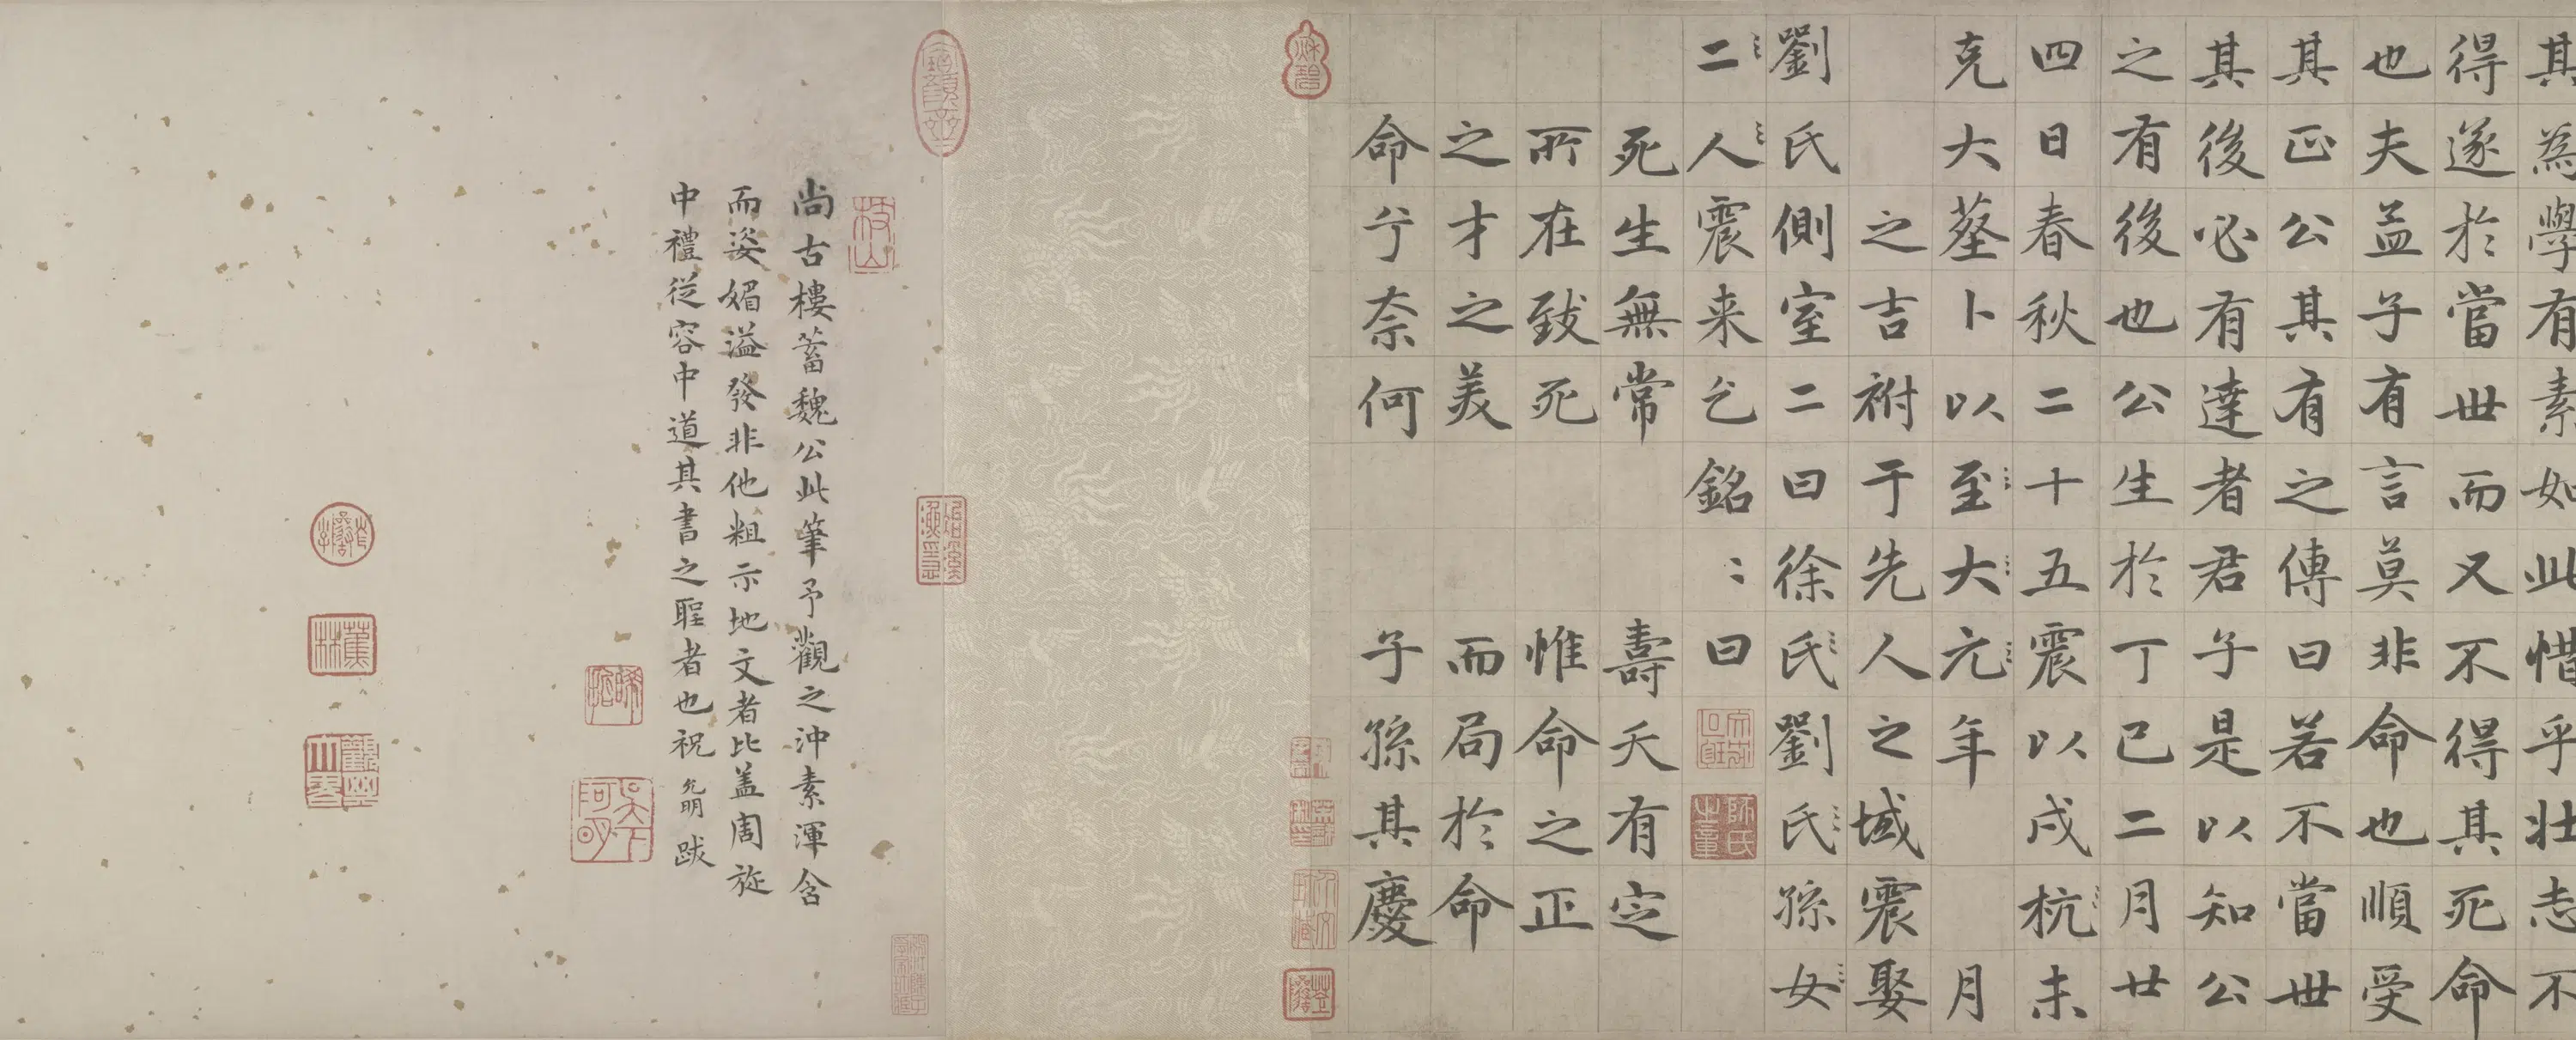 其為學有素如此惜乎壯志不
得遂於當世而又不得其死命
也夫孟子有言莫非命也順受
其正公其有之傳曰若不當世
其後必有達者君子是以知公
之有後也公生於丁巳二月廿
四日春秋二十五震以戌杭未
克大葬卜以至大元年 月
之吉祔于先人之域震娶
劉氏側室二曰徐氏劉氏孫女
二人震来乞銘：曰
死生無常 壽夭有定
所在致死 惟命之正
之才之美 而局於命
命兮奈何 子孫其慶
枝山
尚古樓蓄魏公此筆予觀之沖素渾含
而姿媚溢發非他粗示地文者比盖周旋
中禮從容中道其書之聖者也祝允明跋
晞哲
吳下阿明
蕉林
觀其大略